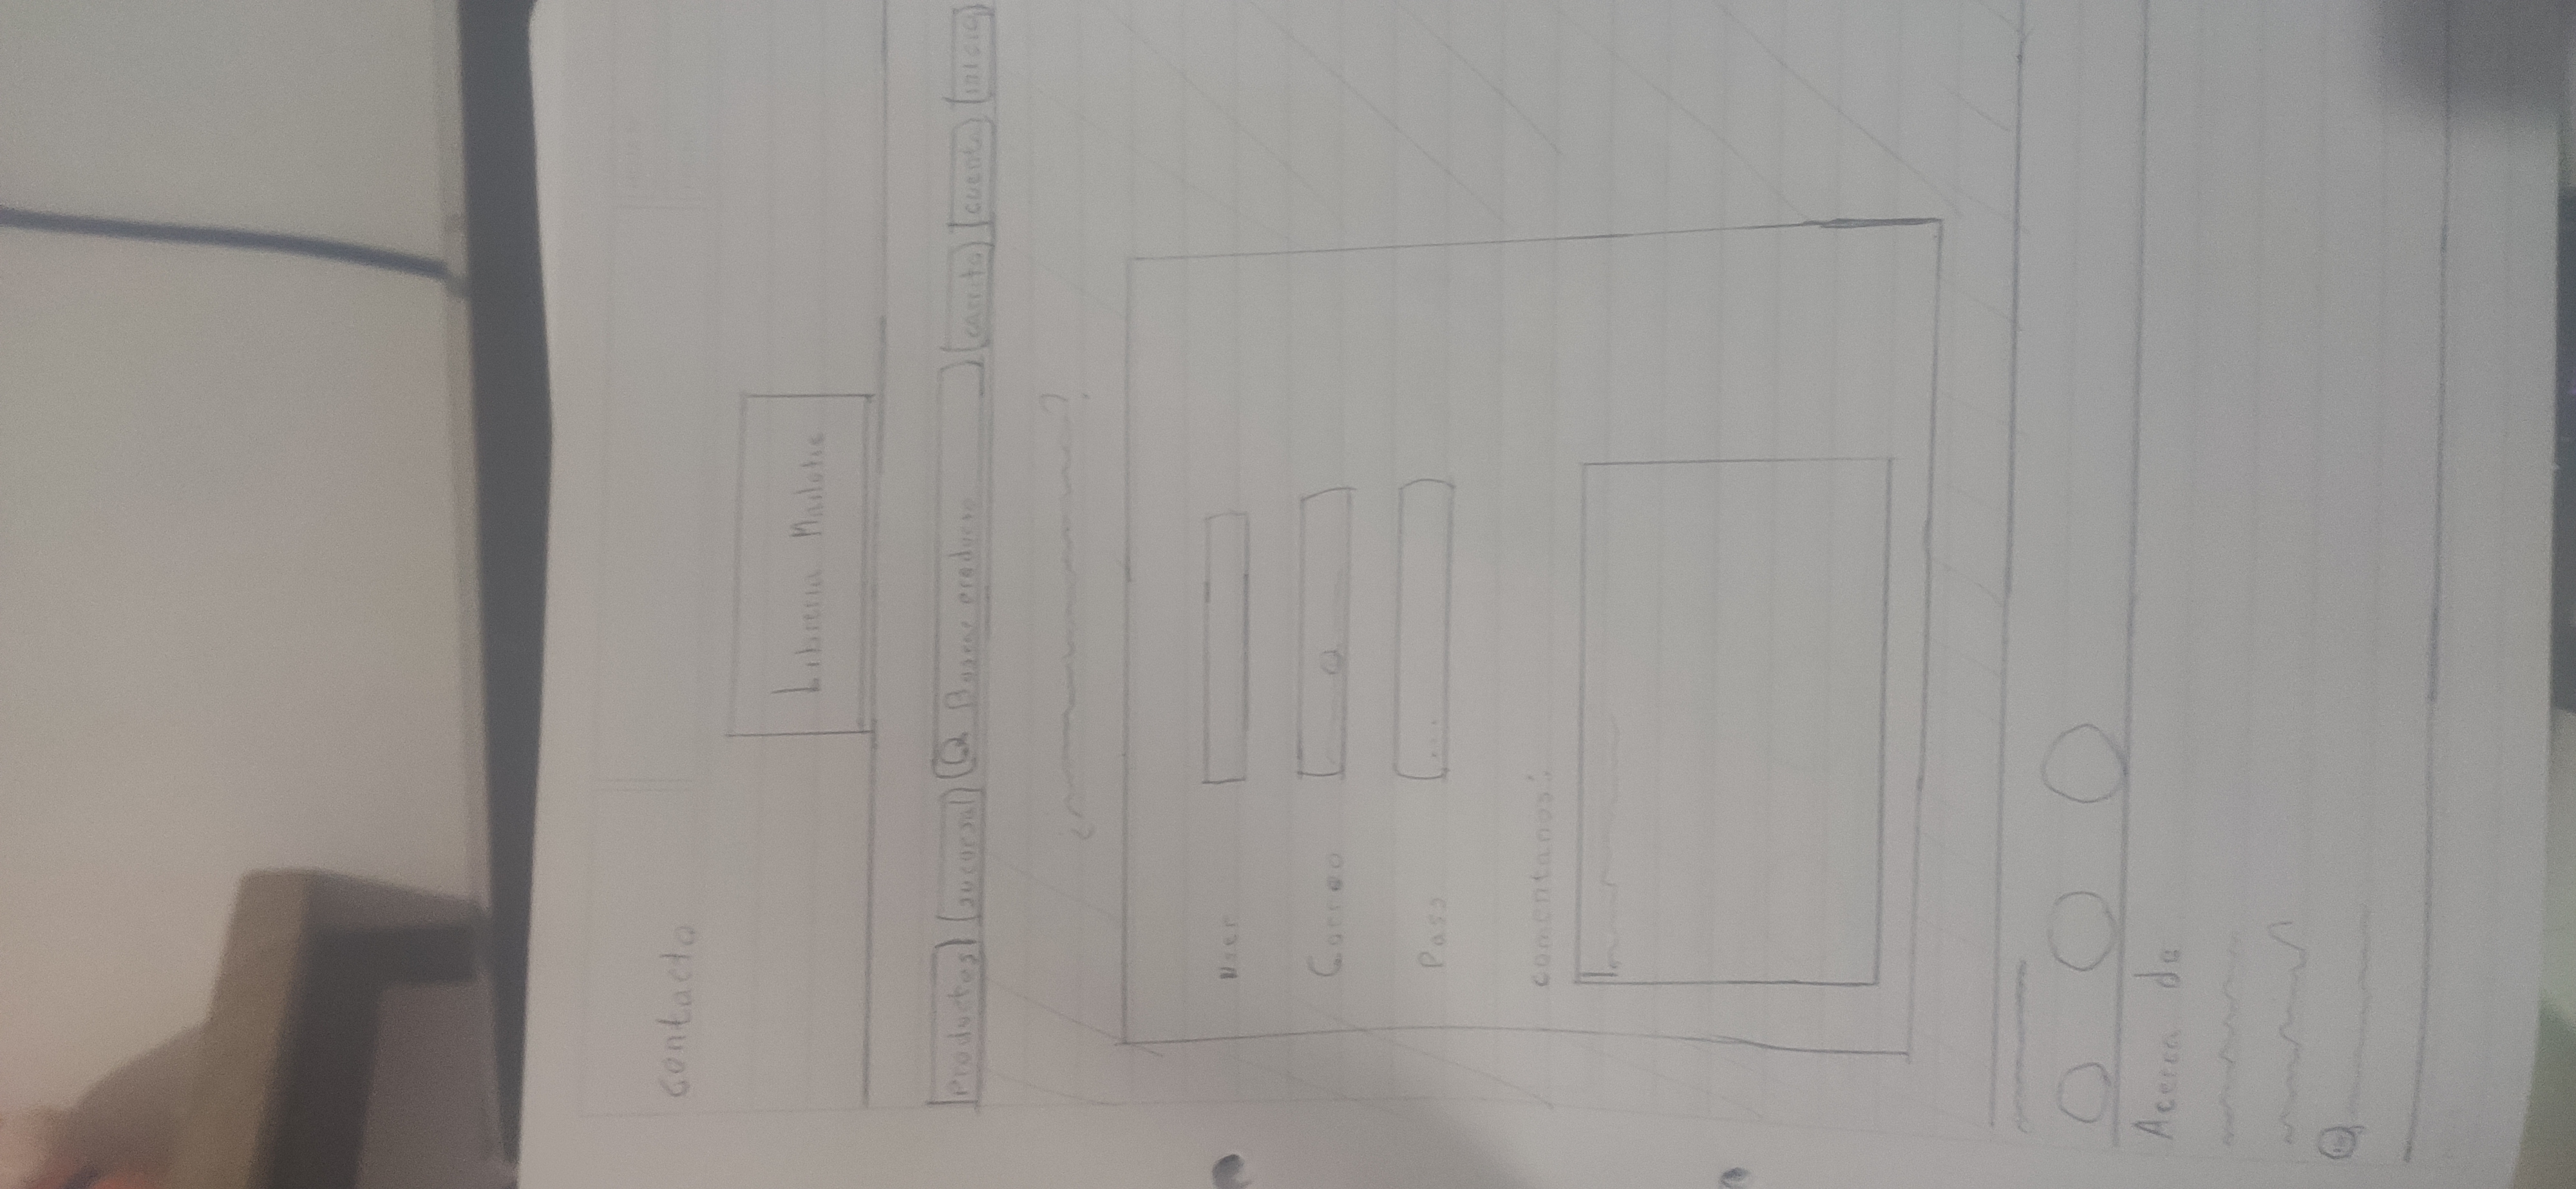 contacto
Libreria
Productos sucursal Buscar producto carrito cuenta inicio
¿ ?
User
Correo @
Pass ...
comentarios:
Acerca de